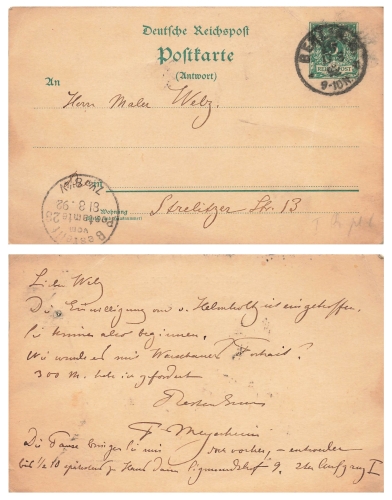 Deutsche Reichspost
Postkarte
(Antwort)
An
Herrn Maler Welz
BERLIN
9-10
REICHSPOST
31.8.92
Wohnung
Strelitzer Str. 13
Lieber Welz
Die Einwilligung von v. Helmholtz ist eingetroffen.
Sie können also beginnen.
Wie wurde es mit Portrait?
300 M. habe ich gefordert
Besten Gruss
F. Meyerheim
Die Pause bringen Sie mir vorher, – entweder
bis 1/2 10 spätestens zu Haus 9, 2ter Aufgang I